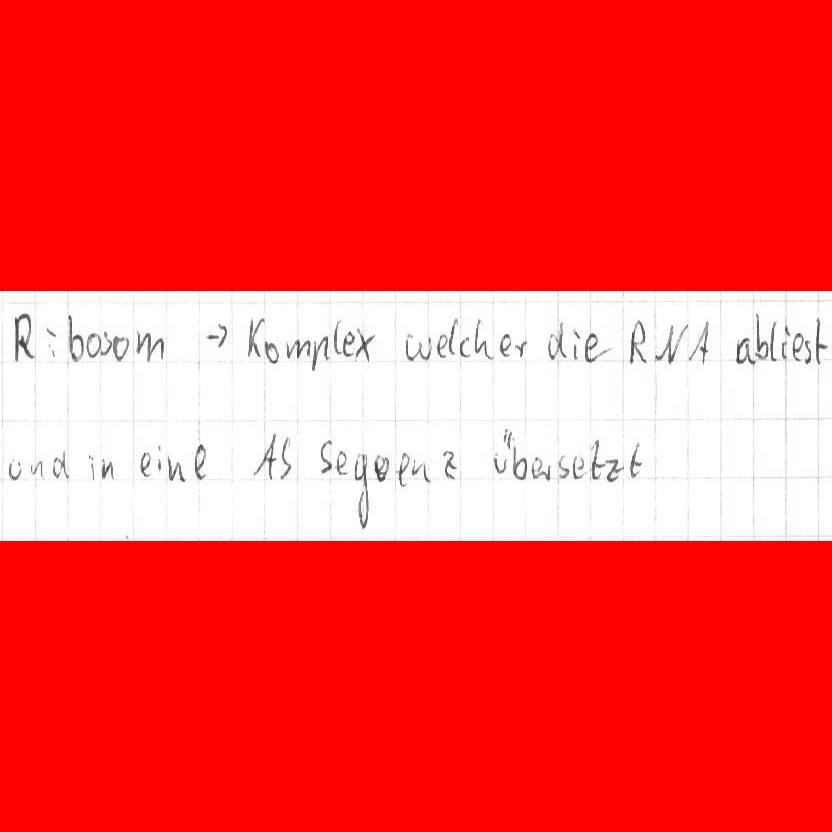 Ribosom → Komplex welcher die RNA abliest
und in eine AS Seqoenz übersetzt